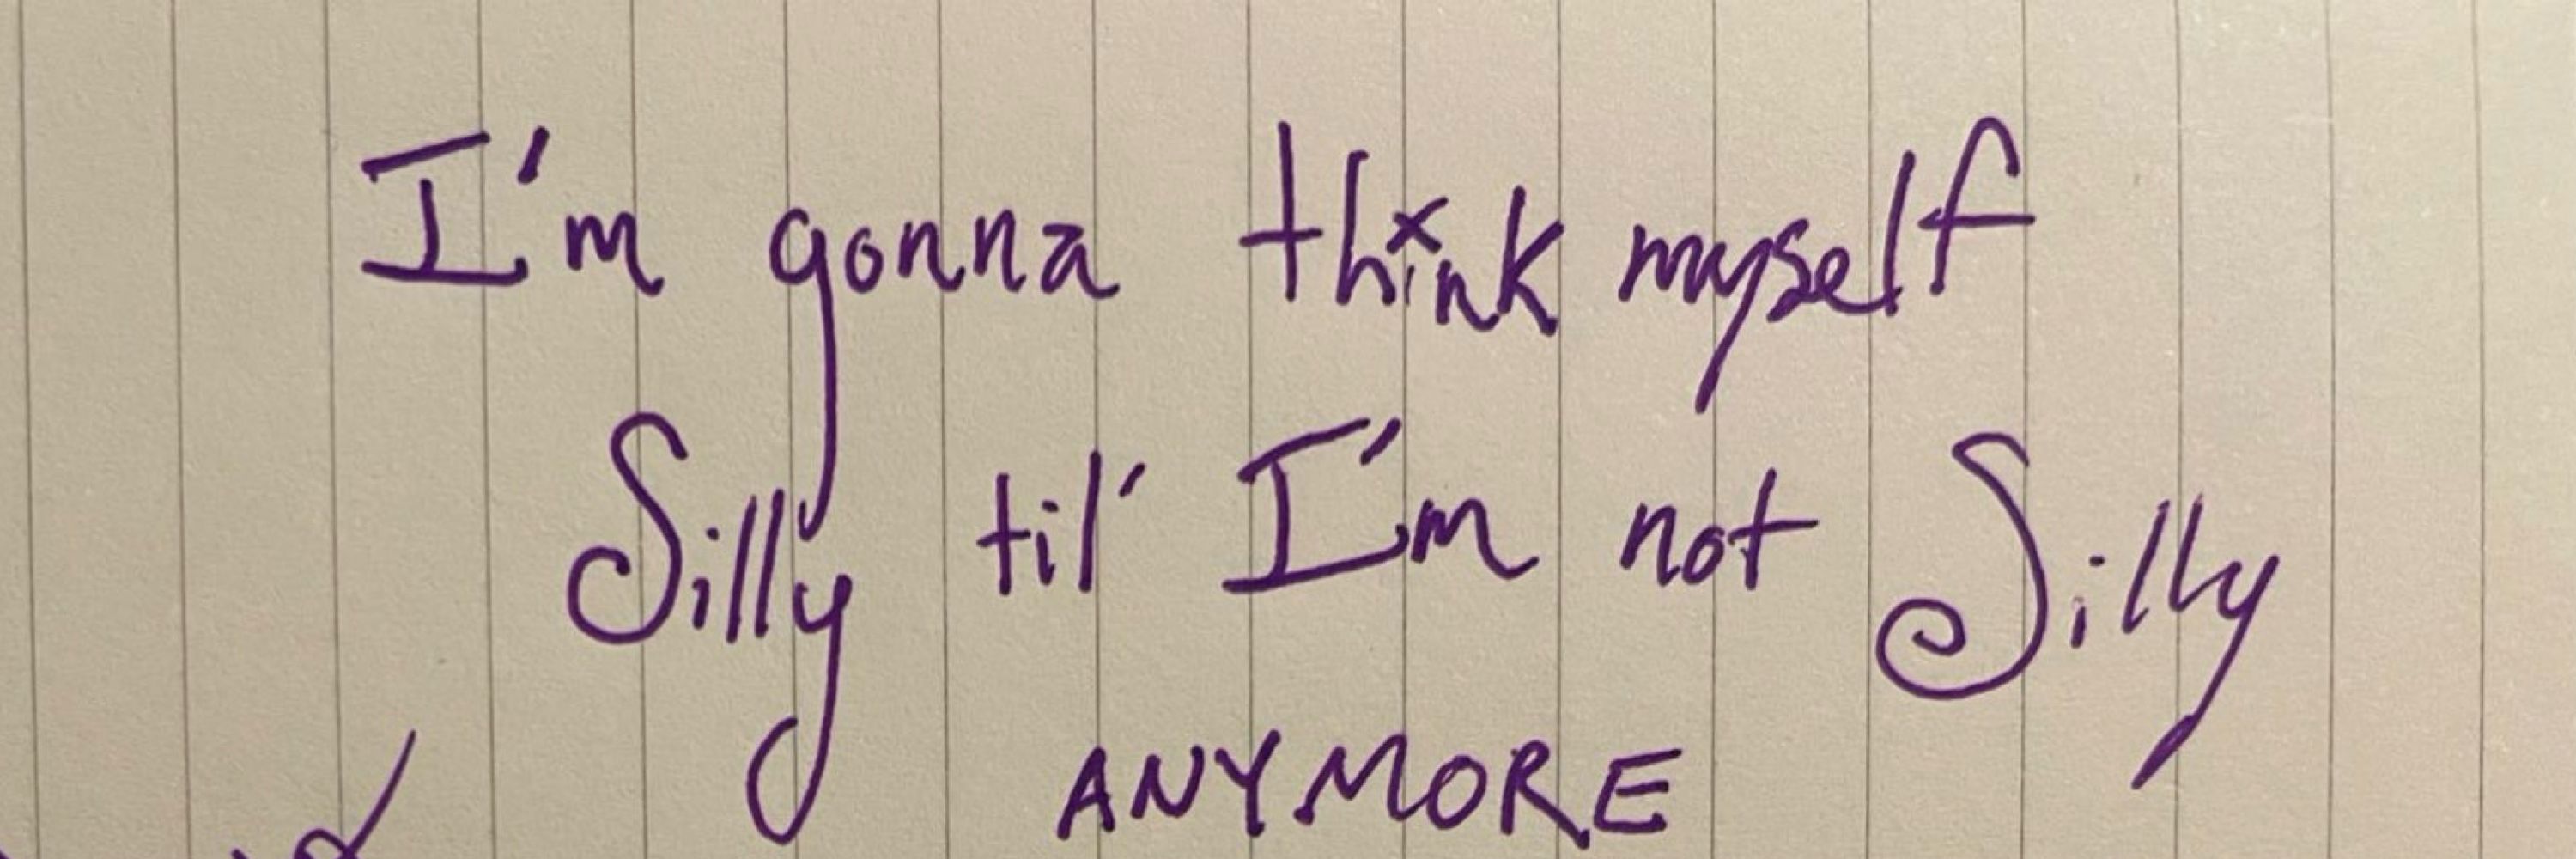 I'm gonna think myself
Silly til' I'm not Silly
ANYMORE